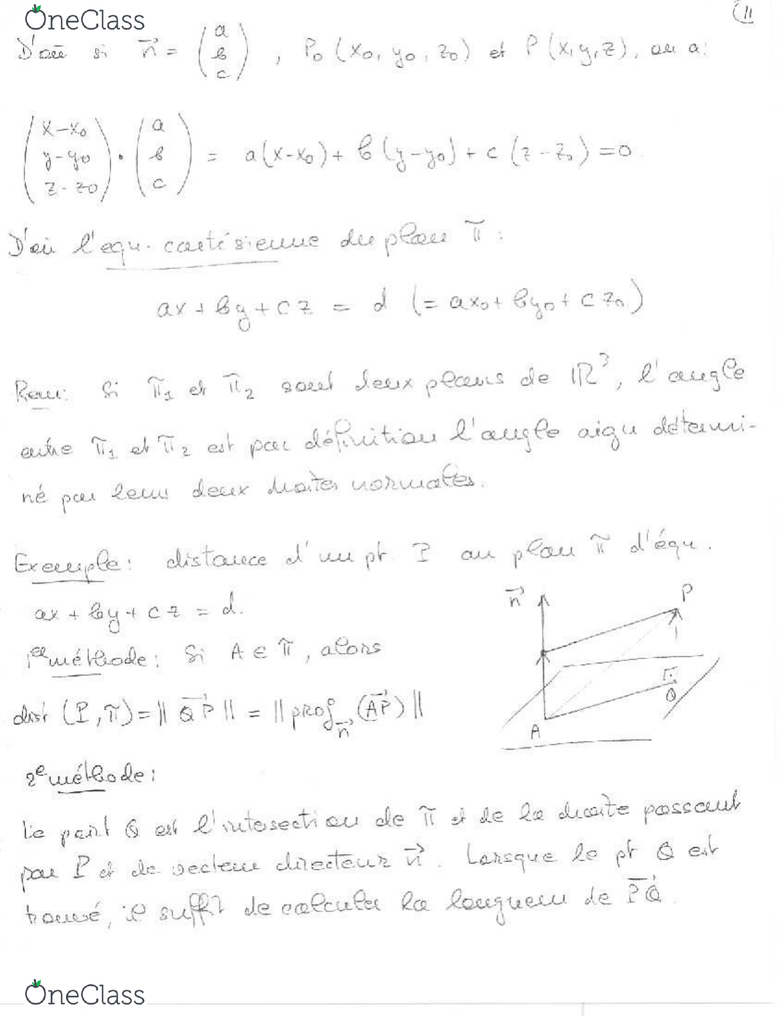 OneClass
11
D'où si n⃗ = (a b c), P₀ (x₀, y₀, z₀) et P (x, y, z), on a:
(x-x₀ y-y₀ z-z₀) · (a b c) = a(x-x₀) + b(y-y₀) + c(z-z₀) = 0
D'où l'équ. cartésienne du plan π:
ax + by + cz = d (= ax₀ + by₀ + cz₀)
Rem: Si π₁ et π₂ sont deux plans de ℝ³, l'angle
entre π₁ et π₂ est par définition l'angle aigu détermi-
né par leurs deux droites normales.
Exemple: distance d'un pt. P au plan π d'équ.
ax + by + cz = d.
1ʳᵉ méthode: Si A ∈ π, alors
dist (P, π) = ‖QP⃗‖ = ‖proj_n⃗ (AP⃗)‖
n⃗
P
Q
A
2ᵉ méthode:
Le point Q est l'intersection de π et de la droite passant
par P et de vecteur directeur n⃗. Lorsque le pt Q est
trouvé, il suffit de calculer la longueur de PQ⃗.
OneClass